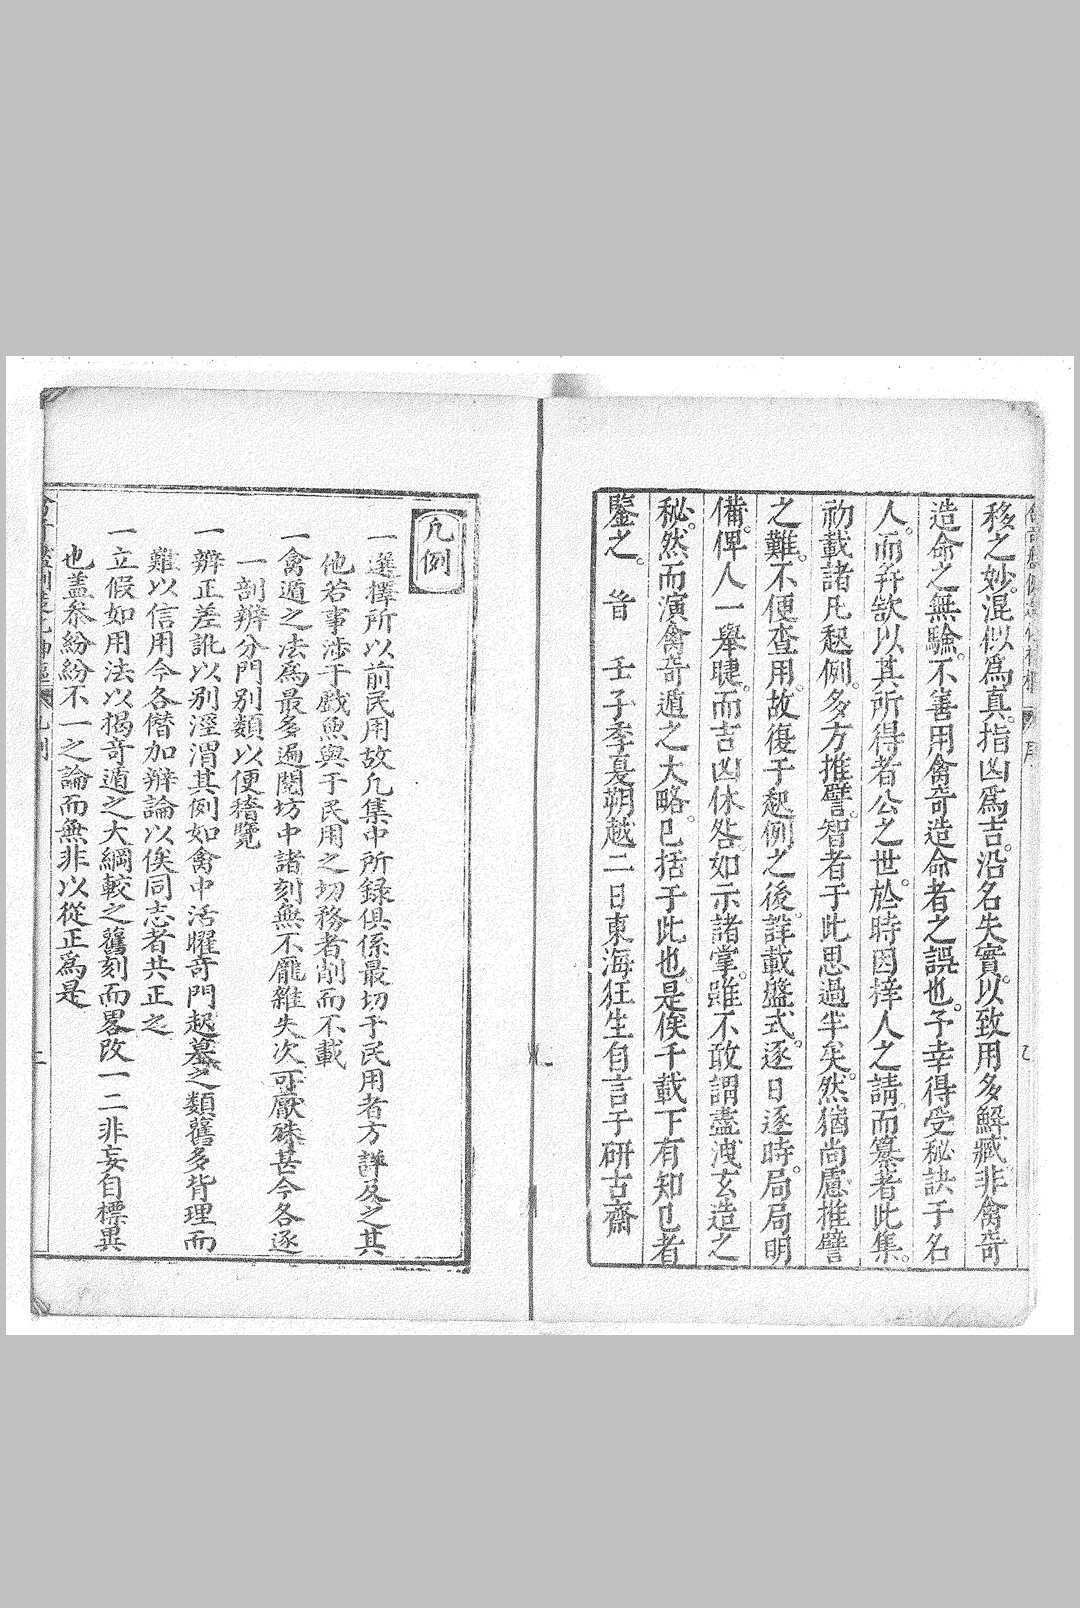 移之妙。混似爲真。指凶爲吉。沿名失實。以致用多解臧。非禽奇
造命之無驗。不善用禽奇造命者之誤也。予幸得受秘訣于名
人。而弁欲以其所得者公之世。於時因梓人之請。而纂著此集。
初載諸凡起例。多方推譬。智者于此思過半矣。然猶尚慮推譬
之難。不便查用。故復于起例之後。詳載盤式。逐日逐時。局局明
備。俾人一舉睫。而吉凶休咎。如示諸掌。雖不敢謂盡洩玄造之
秘。然而演禽奇遁之大略。已括于此也。是俟千載下有知己者
鑒之。 旹 壬子季夏朔越二日東海狂生自言于研古齋
凡例
一選擇所以前民用故凡集中所録俱係最切于民用者方詳及之其
他若事涉于戲魚與于民用之切務者削而不載
一禽遁之法爲最多遍閱坊中諸刻無不龐雜失次可厭殊甚今各逐
一剖辨分門別類以便稽覽
一辨正差訛以別涇渭其例如禽中活曜奇門起墓之類舊多背理而
難以信用今各僭加辨論以俟同志者共正之
一立假如用法以揭奇遁之大綱較之舊刻而畧改一二非妄自標異
也蓋叅紛紛不一之論而無非以從正爲是